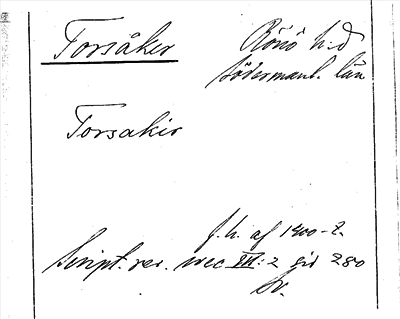 Torsåker
Rönö h:d
Södermanl. län
Torsakir
f.h. af 1400-t.
Script. rer. svec III:2 sid 280